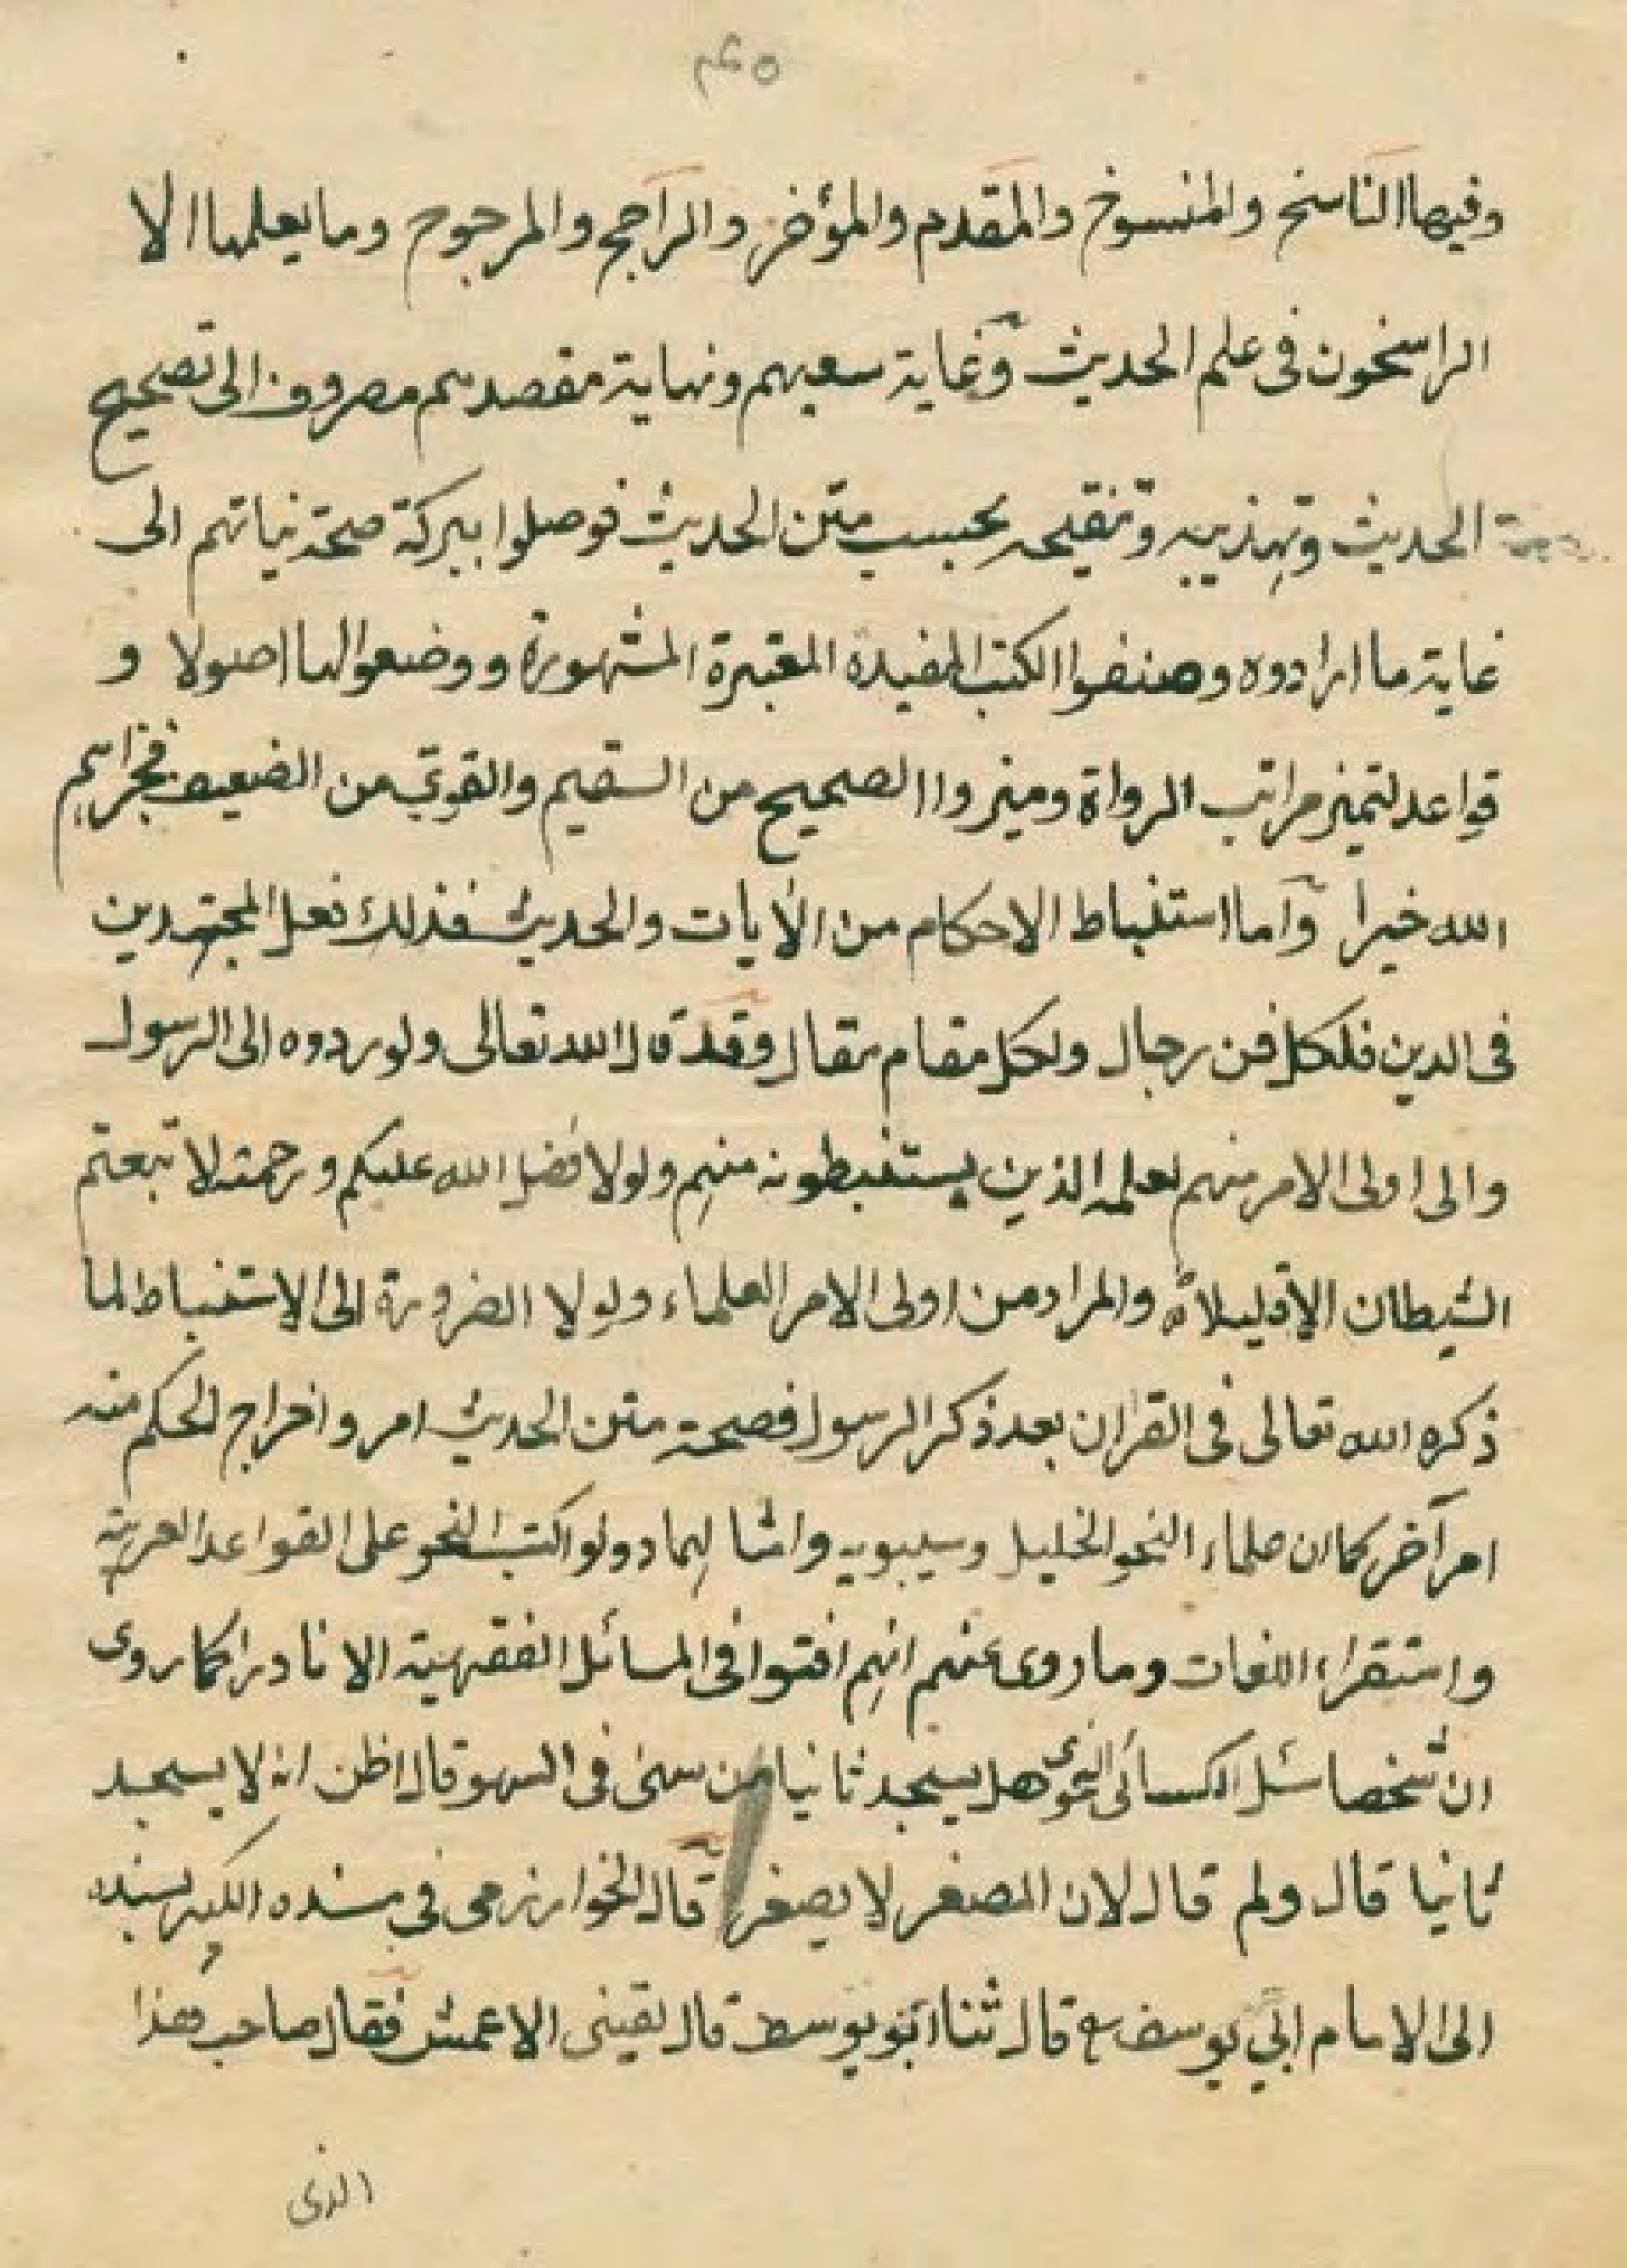 وفيها الناسخ والمنسوخ والمقدم والمؤخر والراجح والمرجوح وما يعلمها الا
الراسخون في علم الحديث وغاية سعيهم ونهاية مقصدهم مصروف الى تصحيح
الحديث وتهذيبه وتنقيحه بحسب متن الحديث فوصلوا ببركة صحة نياتهم الى
غاية ما ارادوه وصنفوا الكتب المفيدة المعتبرة المشهورة ووضعوا لها اصولا و
قواعد لتميز مراتب الرواة وميزوا الصحيح من السقيم والقوي من الضعيف فجزاهم
الله خيرا وأما استنباط الاحكام من الأيات والحديث فذلك فعل المجتهدين
في الدين فلكل فن رجال ولكل مقام مقال وقد قال الله تعالى ولو ردوه الى الرسول
والى اولى الامر منهم لعلمه الذين يستنبطونه منهم ولولا فضل الله عليكم ورحمته لاتبعتم
الشيطان الا قليلا والمراد من اولى الامر العلماء ولولا الضرورة الى الاستنباط لما
ذكره الله تعالى في القران بعد ذكر الرسول فصحة متن الحديث امر واخراج الحكم منه
امر آخر كما ان علماء النحو الخليل وسيبويه وامثالهما دونوا كتب النحو على القواعد العربية
واستقراء اللغات وما روى عنهم انهم افتوا في المسائل الفقهية الا نادرا كما روى
ان شخصا سئل الكسائى النحوى هل يسجد ثانيا من سهى في السهو قال اظن انه لا يسجد
ثانيا قال ولم قال لان المصغر لا يصغر قال الخوارزمى في مسنده الكبير بسنده
الى الامام ابي يوسف قال ثنا ابو يوسف قال لقينى الاعمش فقال صاحب هذا
الذى